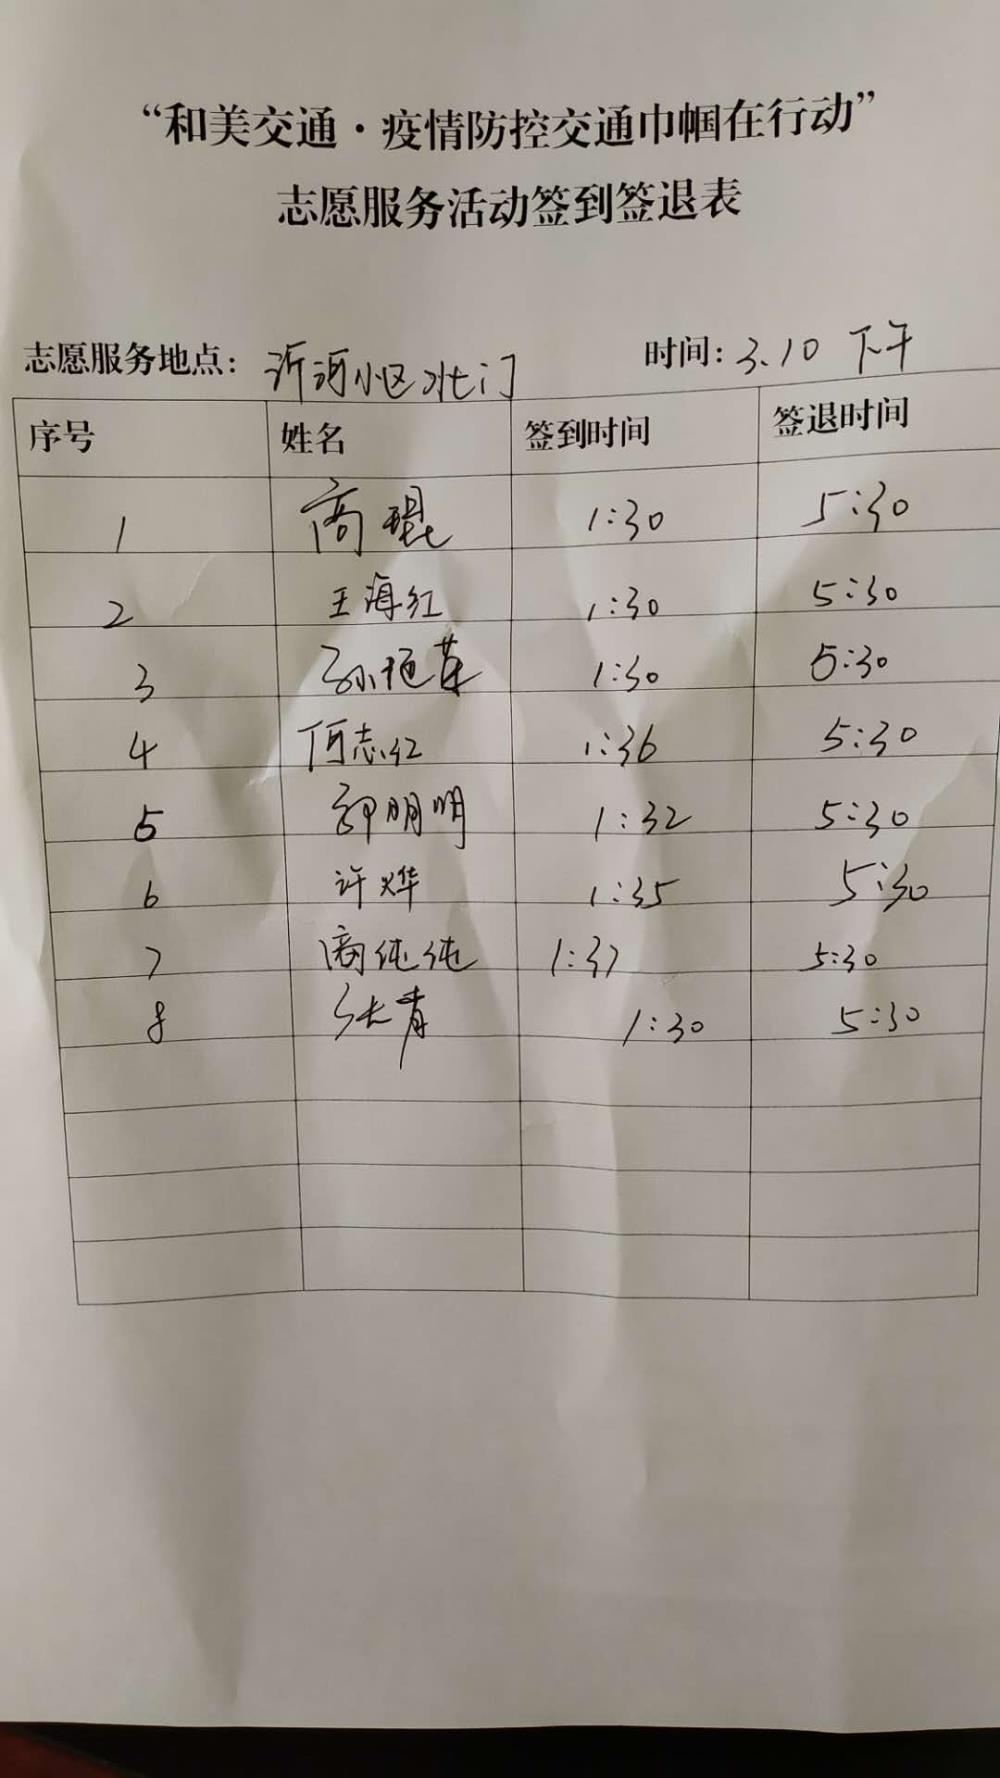 “和美交通·疫情防控交通巾帼在行动”
志愿服务活动签到签退表
志愿服务地点：沂河小区北门 时间：3.10 下午
序号 姓名 签到时间 签退时间
1 商琨 1:30 5:30
2 王海红 1:30 5:30
3 孙艳 1:30 5:30
4 何志红 1:36 5:30
5 郭明明 1:32 5:30
6 许烨 1:35 5:30
7 商纯纯 1:37 5:30
8 张青 1:30 5:30